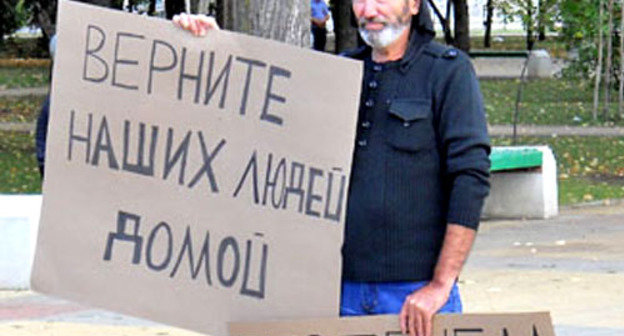 ВЕРНИТЕ
НАШИХ ЛЮДЕЙ
ДОМОЙ